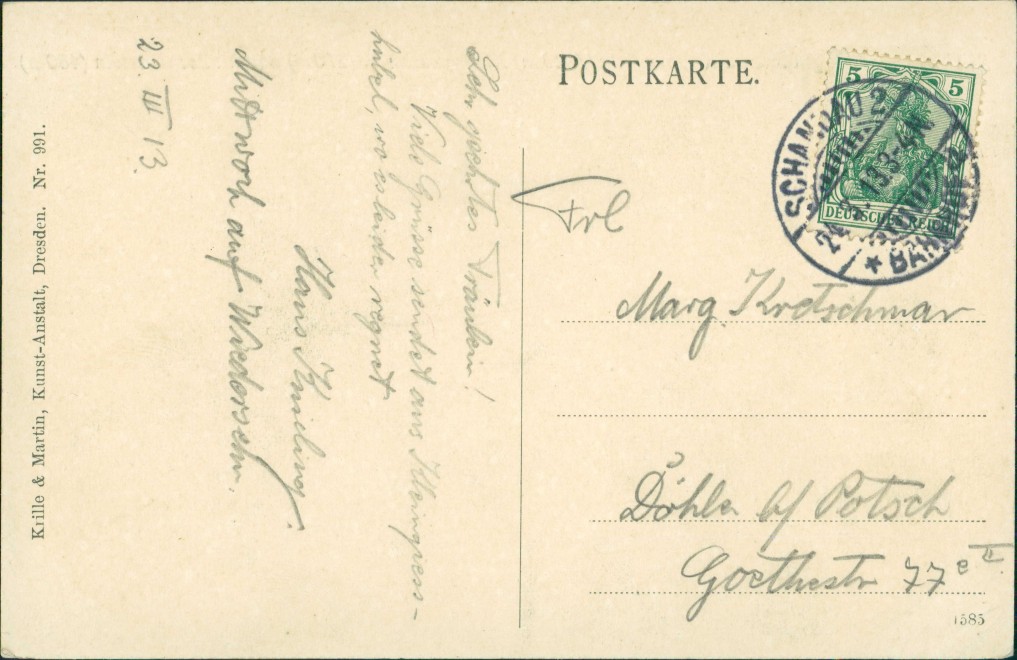 POSTKARTE.
5 5
DEUTSCHES REICH
SCHANDAU 2
24.3.13.3-4N
BAHNHOF
Frl
Marg. Kretschmar
Döhlen b/ Potsch
Goethestr 77 e II.
1585
Sehr geehrtes Fräulein!
Viele Grüsse sendet aus Kleingiess-
hübel, wo es leider regnet
Hans Knieling.
Mittwoch auf Wiedersehn.
23. III 13.
Krille & Martin, Kunst-Anstalt, Dresden. Nr. 991.